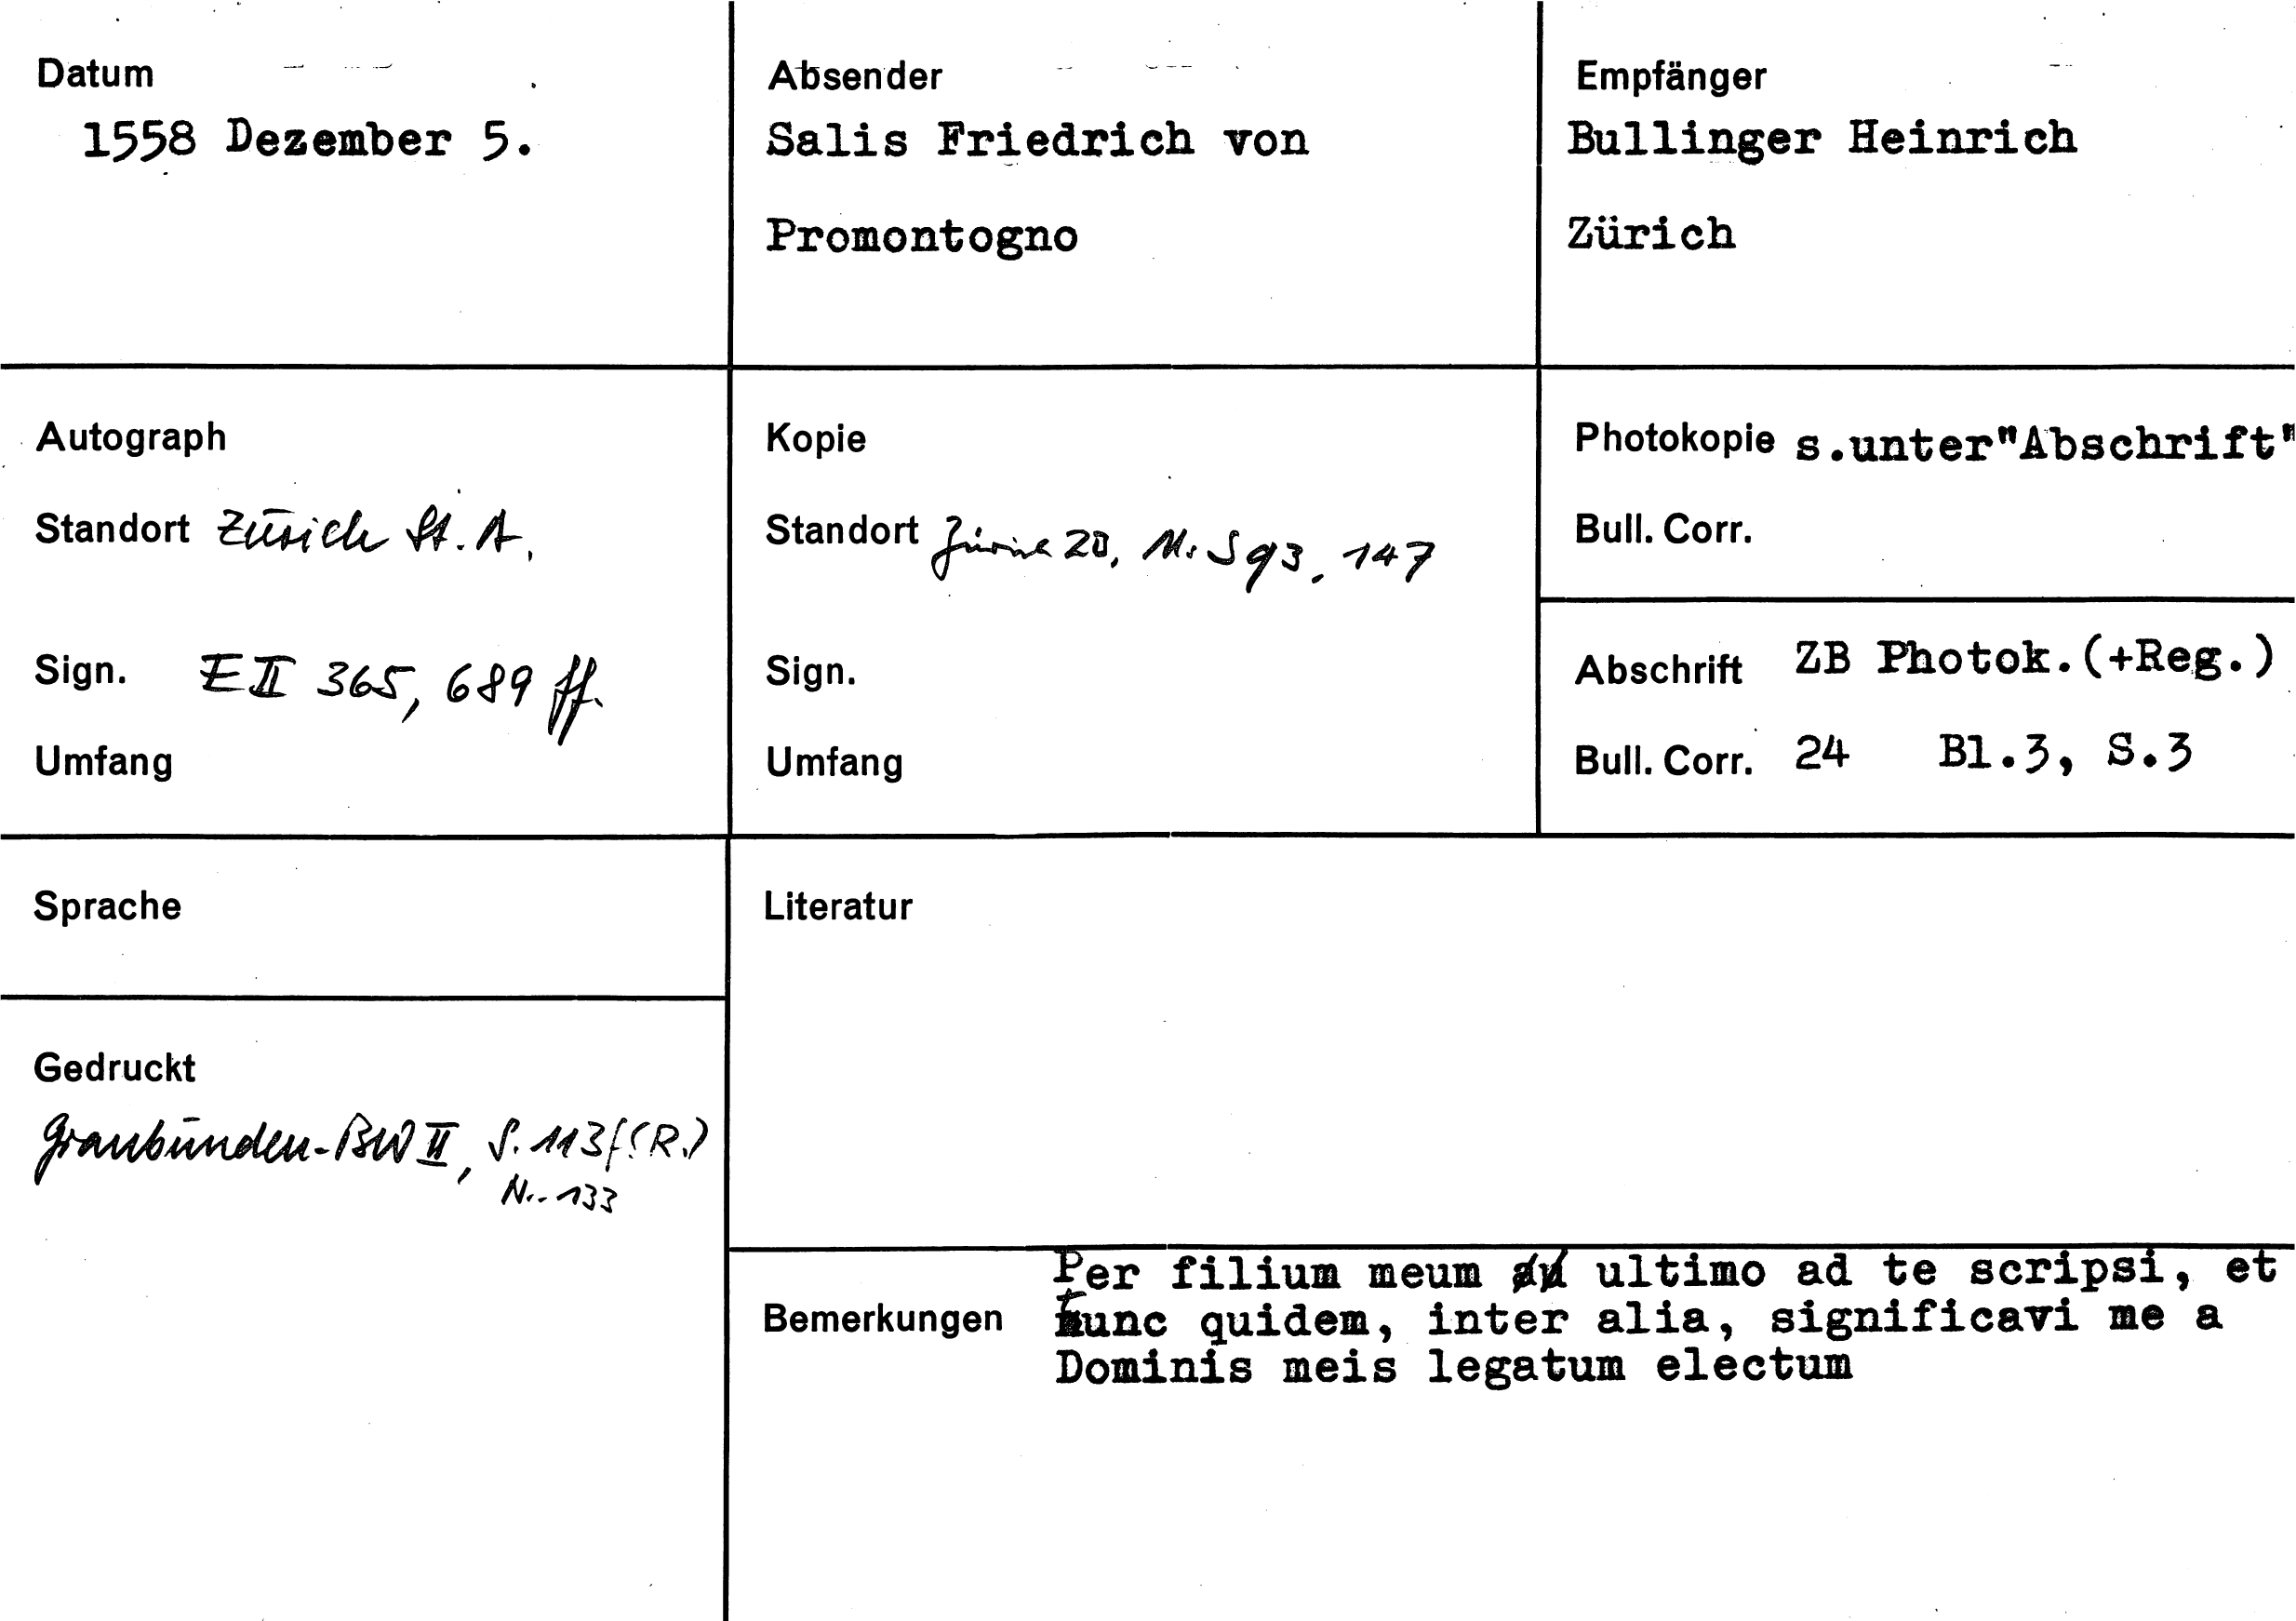 Datum
1558 Dezember 5.
Absender
Salis Friedrich von
Promontogno
Empfänger
Bullinger Heinrich
Zürich
Autograph
Standort Zürich St. A.
Sign. E II 365, 689 ff.
Umfang
Kopie
Standort Zürich ZB, Ms S 93, 147
Sign.
Umfang
Photokopie s.unter"Abschrift"
Bull. Corr.
Abschrift ZB Photok.(+Reg.)
Bull. Corr. 24 Bl.3, S.3
Sprache
Gedruckt
Graubünden-BW II, S. 113f. (R.)
Nr. 133
Literatur
Bemerkungen
Per filium meum ultimo ad te scripsi, et
tunc quidem, inter alia, significavi me a
Dominis meis legatum electum